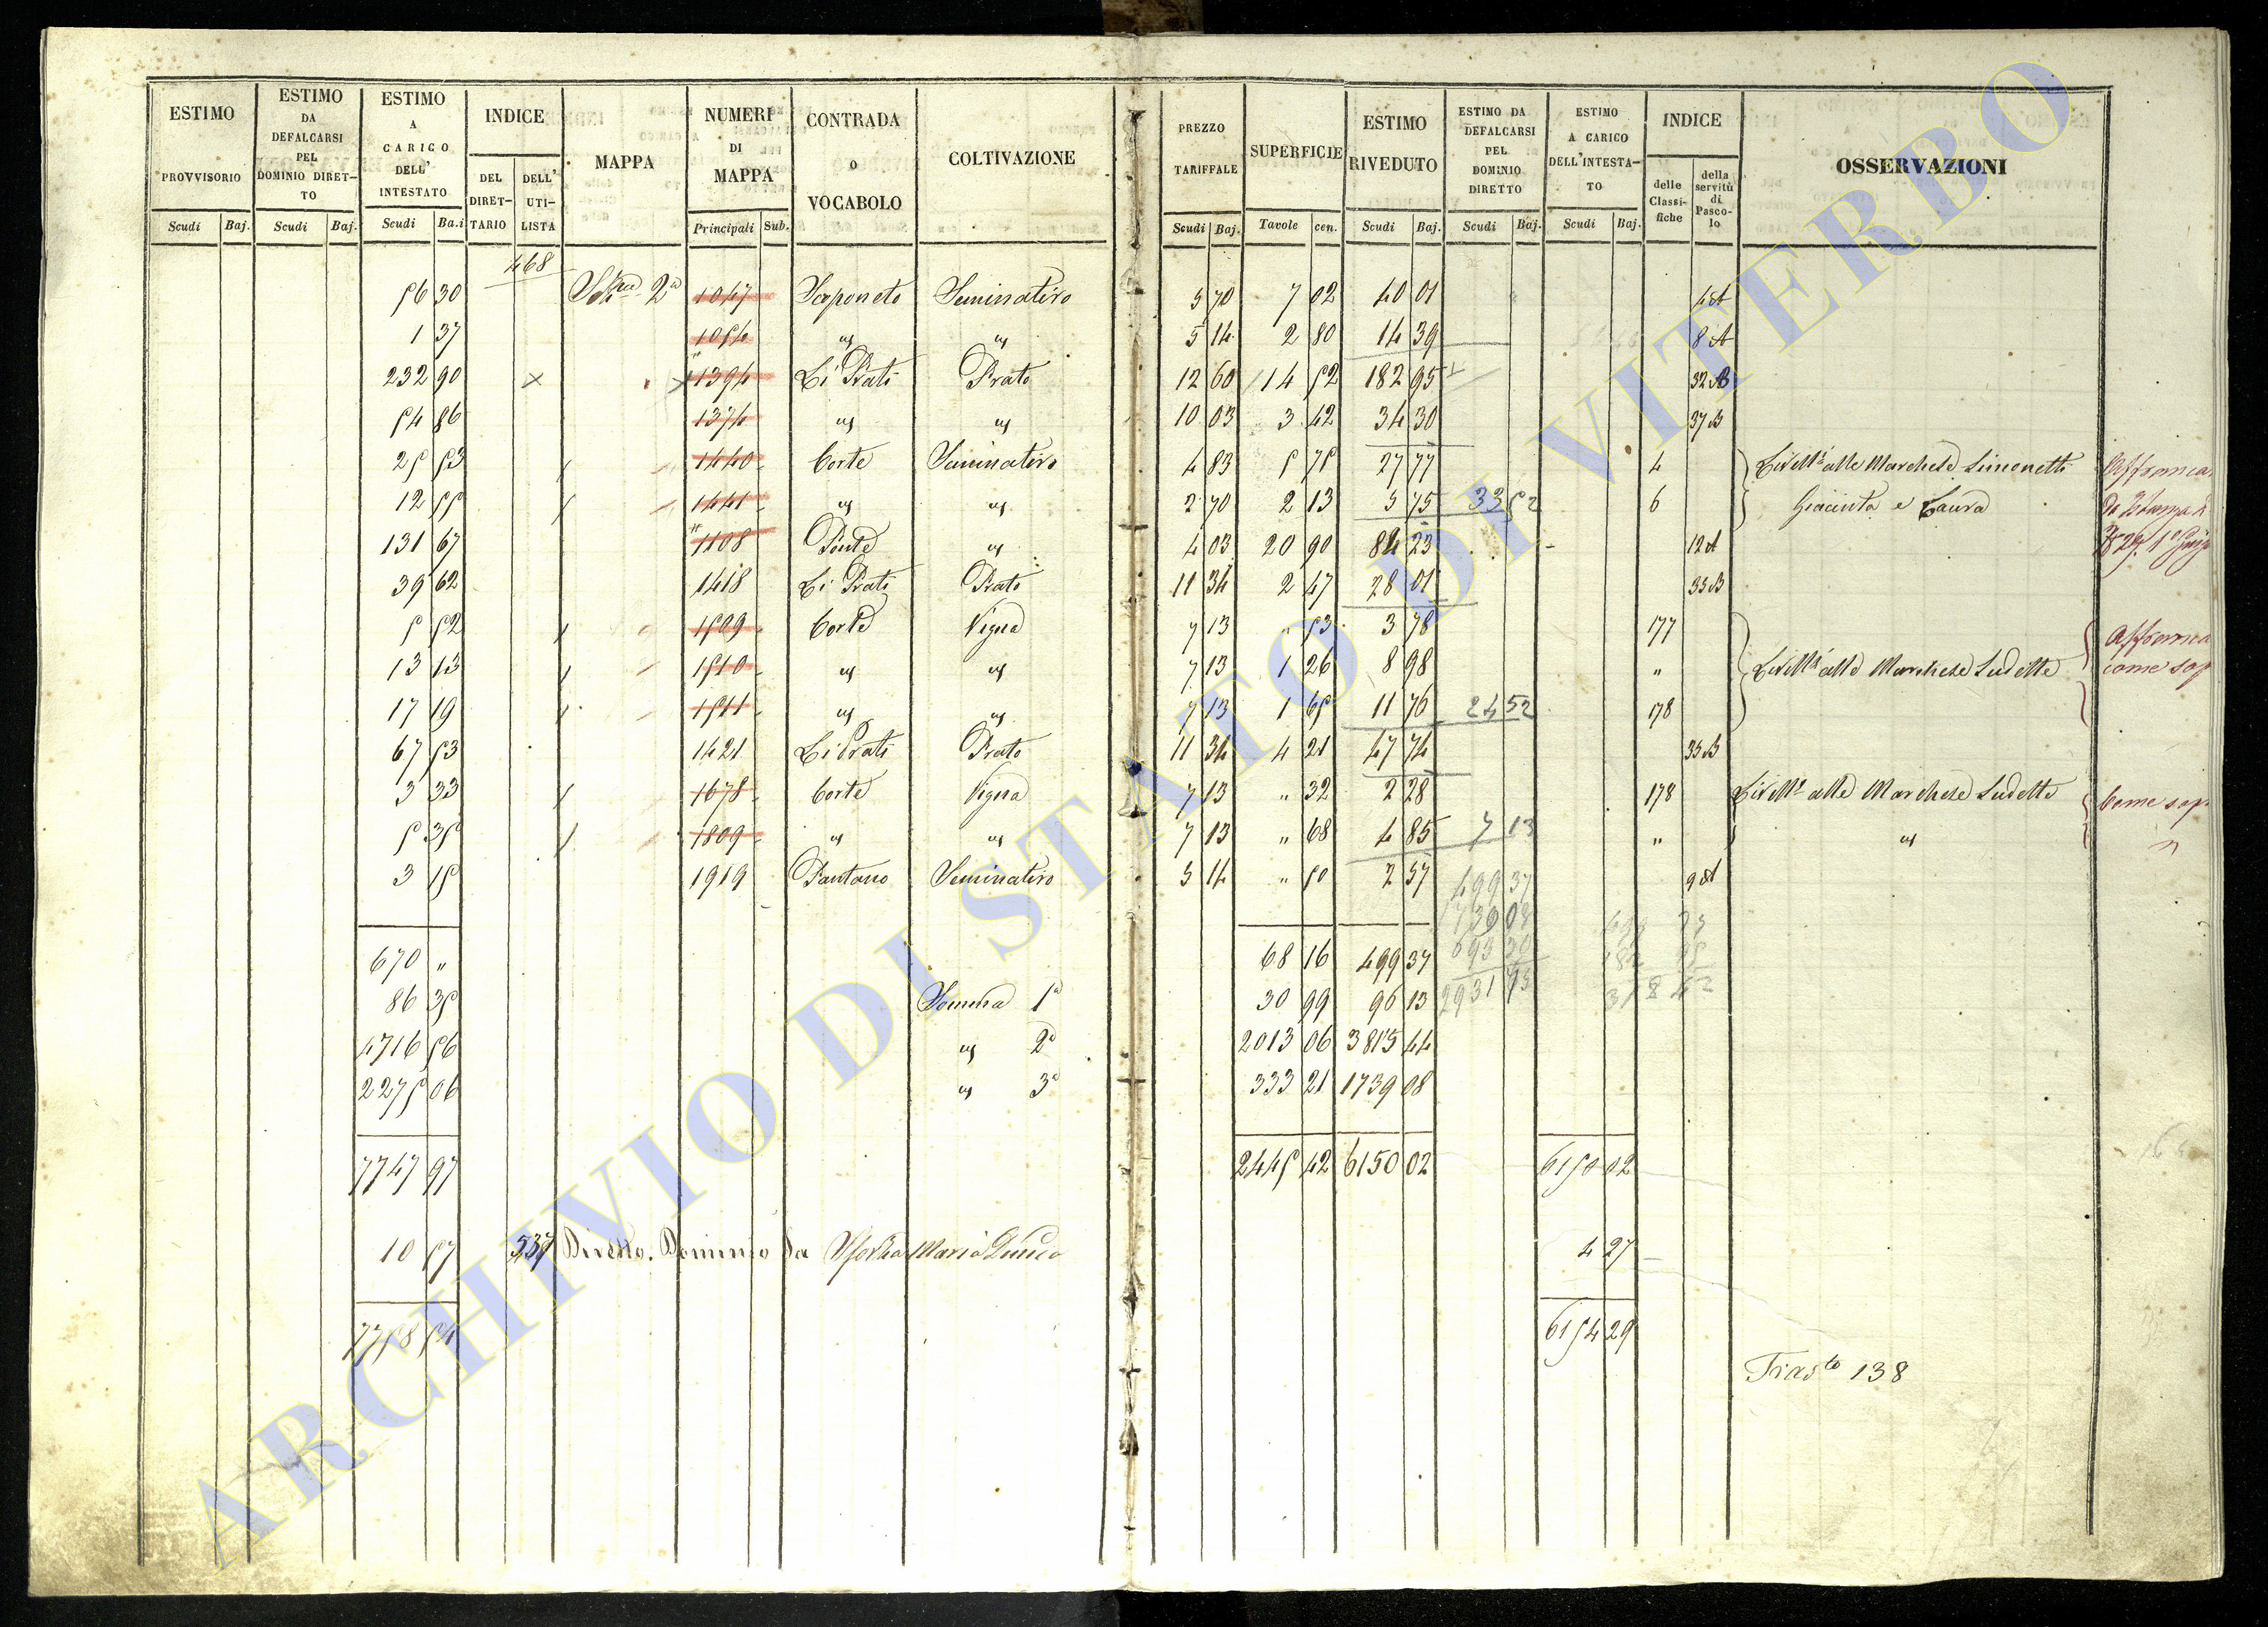 ESTIMO PROVVISORIO Scudi Baj.
ESTIMO DA DEFALCARSI PEL DOMINIO DIRET-TO Scudi Baj.
ESTIMO A CARICO DELL' INTESTATO Scudi Ba.i
INDICE DEL DIRET-TARIO DELL' UTI-LISTA
MAPPA
NUMERI DI MAPPA Principali Sub.
CONTRADA O VOCABOLO
COLTIVAZIONE
PREZZO TARIFFALE Scudi Baj.
SUPERFICIE Tavole cen.
ESTIMO RIVEDUTO Scudi Baj.
ESTIMO DA DEFALCARSI PEL DOMINIO DIRETTO Scudi Baj.
ESTIMO A CARICO DELL'INTESTA-TO Scudi Baj.
INDICE delle Classi-fiche della servitù di Pasco-lo
OSSERVAZIONI
468
56 30 2a 1047 Saponeto Seminativo 5 70 7 02 40 01 4 A
1 37 1054 " " 5 14 2 80 14 39 8 A
232 90 x x 1394 Li Prati Prato 12 60 14 52 182 95 32 B
54 86 1374 " " 10 03 3 42 34 30 37 B
25 53 1440 Corte Seminativo 4 83 5 75 27 77 4 Livell.e alle Marchese Simonetti
12 55 1441 " " 2 70 2 13 5 75 33 52 6 Giacinta e Laura
131 67 1108 Ponte " 4 03 20 90 84 23 12 A
39 62 1418 Li Prati Prato 11 34 2 47 28 01 35 B
5 52 1509 Corte Vigna 7 13 " 53 3 78 177 Affranca
13 13 1510 " " 7 13 1 26 8 98 " Livell.e alle Marchese Sudette come sop
17 19 1511 " " 7 13 1 65 11 76 24 52 178
67 53 1421 Li Prati Prato 11 34 4 21 47 74 35 B
3 33 1678 Corte Vigna 7 13 " 32 2 28 178 Livell.e alle Marchese Sudette Come sop.
5 35 1809 " " 7 13 " 68 4 85 7 13 " "
3 15 1919 Pantano Seminativo 5 14 " 50 2 57 9 A
499 37
1739 08
693 30
2931 75
670 " 68 16 499 37
86 35 Somma 1a 30 99 96 13
4716 56 " 2a 2013 06 3815 44
2275 06 " 3a 333 21 1739 08
7747 97 2445 42 6150 02 6150 02
10 57 537 Diretto Dominio da Sforza Maria 4 27
7758 54 6154 29
Trasto 138
ARCHIVIO DI STATO DI VITERBO